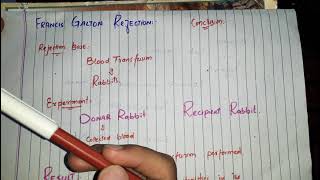 FRANCIS GALTON REJECTION:
Conclusion:
Rejection Base:
Blood Transfusion
Rabbits
Experiment:
DONAR RABBIT
RECIPIENT RABBIT.
Collected blood
performed
RESULT:
in its